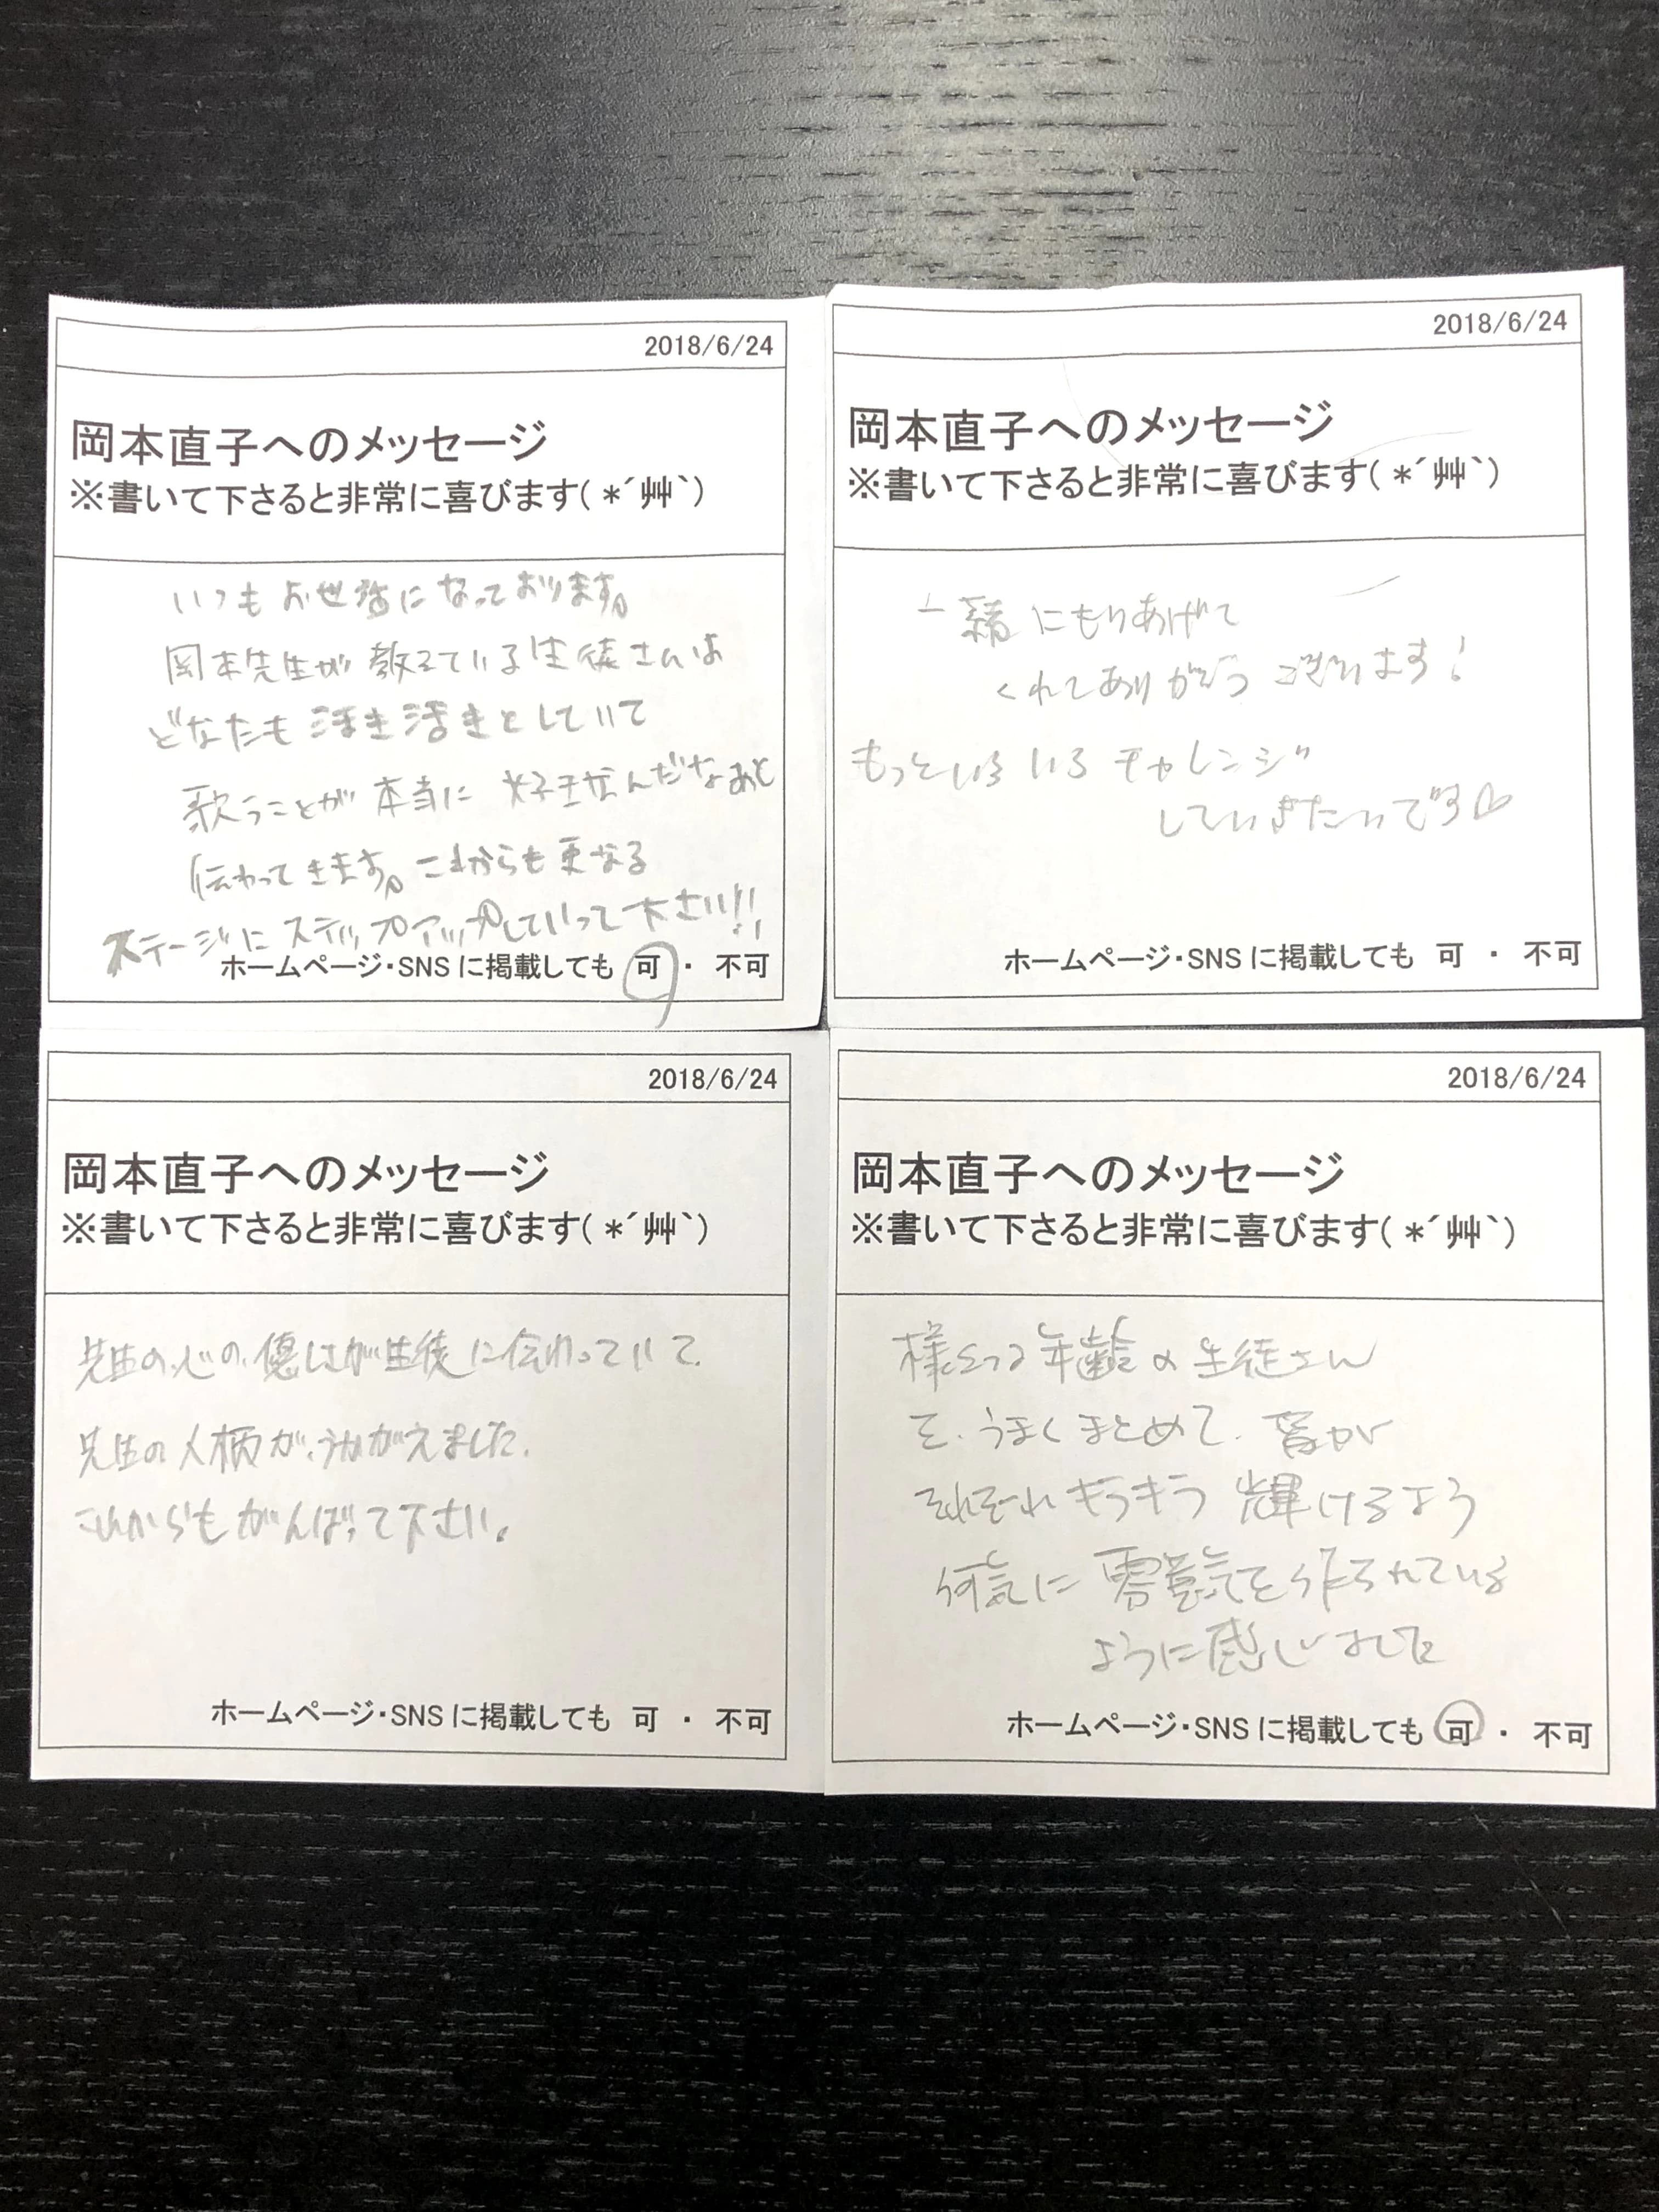 2018/6/24
岡本直子へのメッセージ
※書いて下さると非常に喜びます(*´艸`)
いつもお世話になっております。
岡本先生が教えている生徒さんは
どなたも活き活きとしていて
歌うことが本当に好きなんだなあと
伝わってきます。これからも更なる
ステージにステップアップしていって下さい!!
ホームページ・SNSに掲載しても 可 ・ 不可
2018/6/24
岡本直子へのメッセージ
※書いて下さると非常に喜びます(*´艸`)
一緒にもりあげて
くれてありがとうございます!
もっといろいろチャレンジ
していきたいです♡
ホームページ・SNSに掲載しても 可 ・ 不可
2018/6/24
岡本直子へのメッセージ
※書いて下さると非常に喜びます(*´艸`)
先生の心の優しさが生徒に伝わっていて、
先生の人柄が、うかがえました。
これからもがんばって下さい。
ホームページ・SNSに掲載しても 可 ・ 不可
2018/6/24
岡本直子へのメッセージ
※書いて下さると非常に喜びます(*´艸`)
年齢の生徒さん
を、うまくまとめて、皆が
それぞれキラキラ輝けるよう
何気に雰意気を作られている
ように感じました
ホームページ・SNSに掲載しても 可 ・ 不可